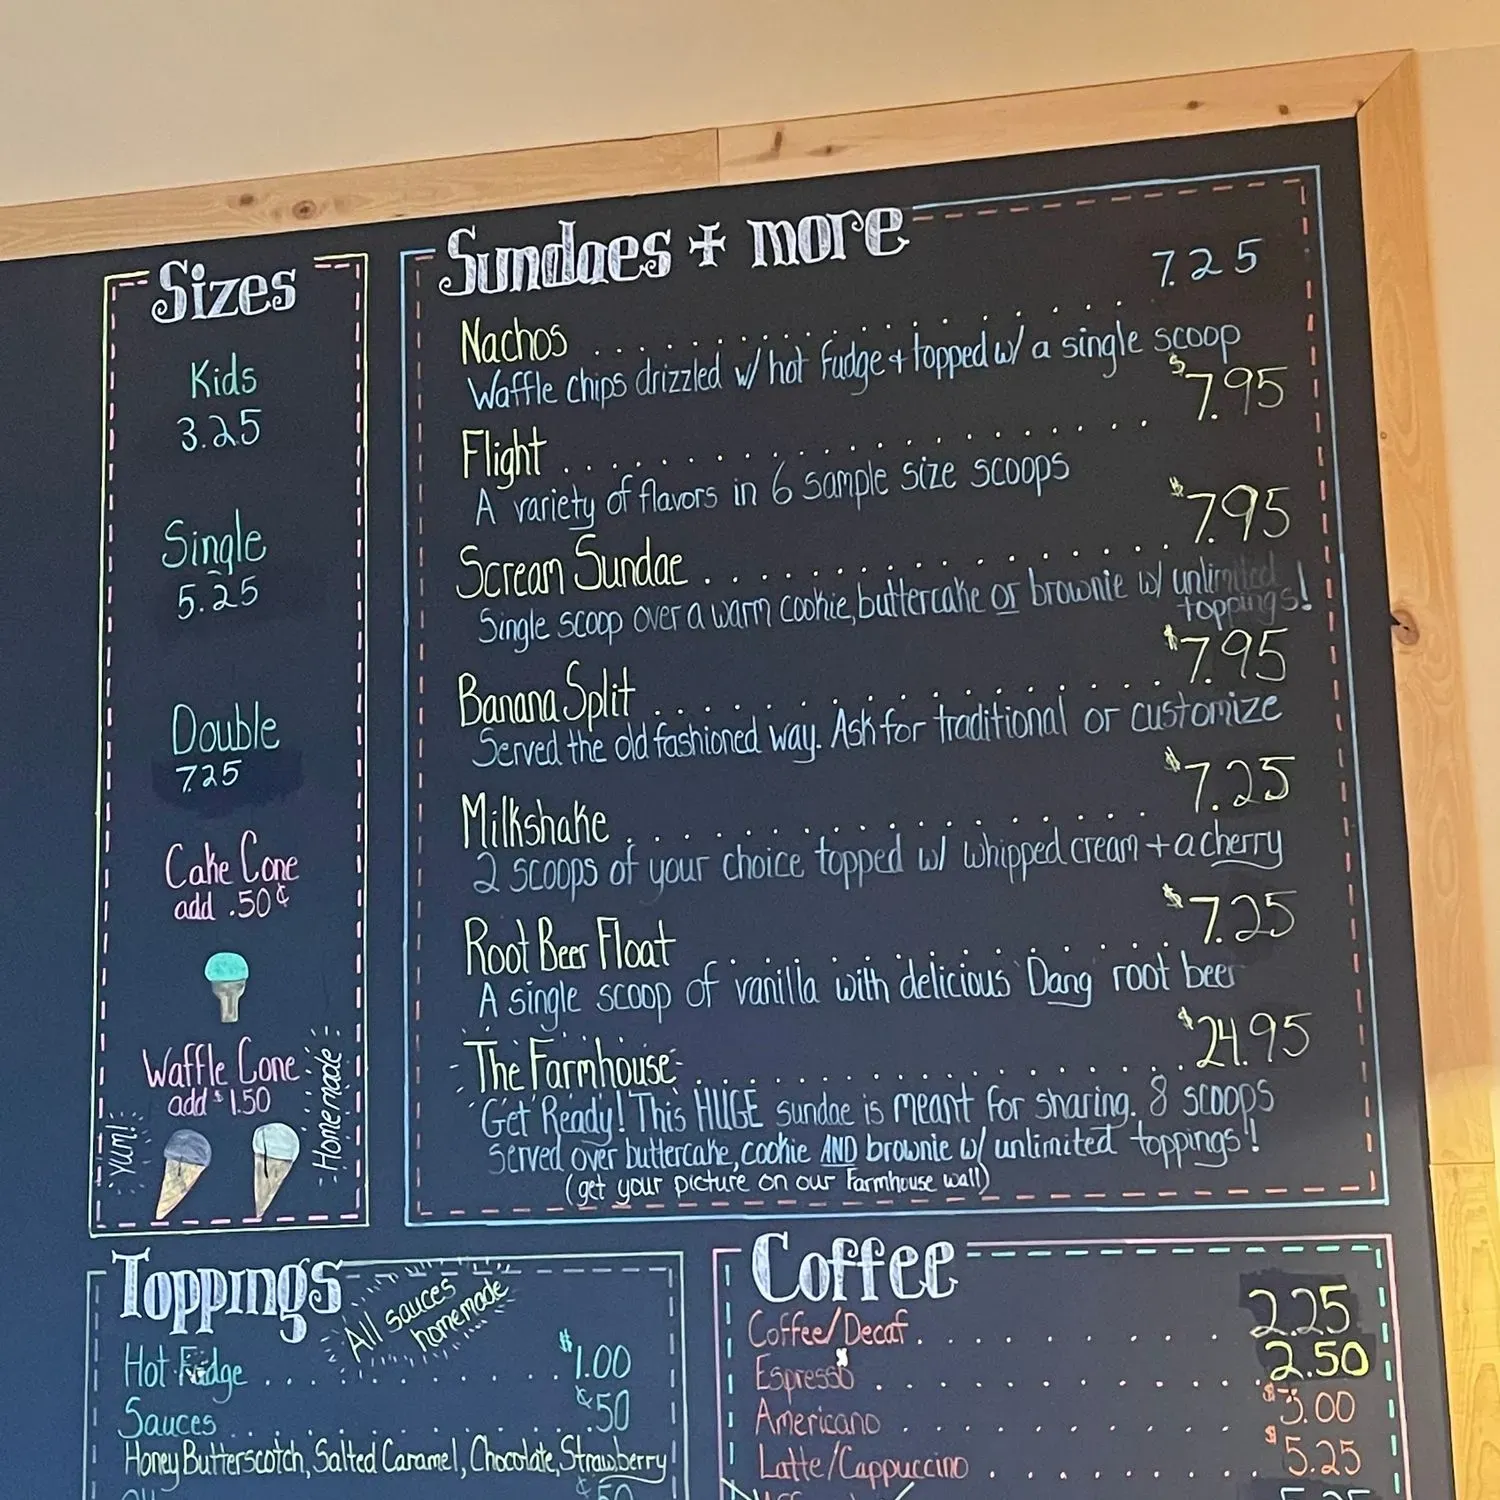 Sizes
Kids
3.25
Single
5.25
Double
7.25
Cake Cone
add .50¢
Waffle Cone
add $1.50
Yum!
Homemade
Sundaes + more
Nachos . . . . . . . . . . . . . . . . . . . 7.25
Waffle chips drizzled w/ hot fudge + topped w/ a single scoop
Flight . . . . . . . . . . . . . . . . . . . . $7.95
A variety of flavors in 6 sample size scoops
Scream Sundae . . . . . . . . . . . . . . . . . $7.95
Single scoop over a warm cookie, buttercake or brownie w/ unlimited
toppings!
Banana Split . . . . . . . . . . . . . . . . . . $7.95
Served the old fashioned way. Ask for traditional or customize
Milkshake . . . . . . . . . . . . . . . . . . . $7.25
2 scoops of your choice topped w/ whipped cream + a cherry
Root Beer Float . . . . . . . . . . . . . . . . $7.25
A single scoop of vanilla with delicious Dang root beer
The Farmhouse . . . . . . . . . . . . . . . . . . $24.95
Get Ready! This HUGE sundae is meant for sharing. 8 scoops
served over buttercake, cookie AND brownie w/ unlimited toppings!
(get your picture on our Farmhouse wall)
Toppings
All sauces
homemade
Hot Fudge . . . . . . . . . . . . $1.00
Sauces . . . . . . . . . . . . . ¢50
Honey Butterscotch, Salted Caramel, Chocolate, Strawberry
¢50
Coffee
Coffee/Decaf . . . . . . . . . . . 2.25
Espresso . . . . . . . . . . . . . 2.50
Americano . . . . . . . . . . . . $3.00
Latte/Cappuccino . . . . . . . . . $5.25